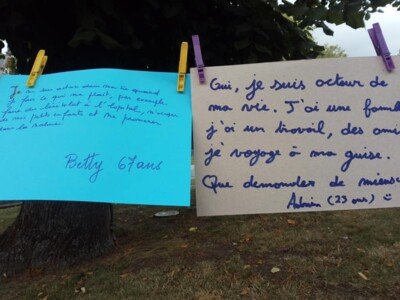 Je suis actrice dans ma vie quand
je fais ce que me plaît, par exemple
faire du bénévolat à l'hôpital, m'occuper
de mes petits enfants et me promener
dans la nature.
Betty 67 ans
Oui, je suis acteur de
ma vie. J'ai une famille
j'ai un travail, des amis
je voyage à ma guise.
Que demander de mieux
(23 ans)